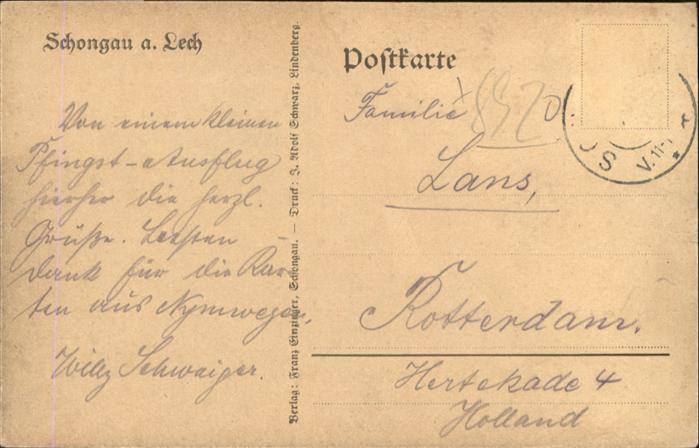 Schongau a. Lech
Von einem kleinen
Pfingst-Ausflug
hierher die herzl.
Grüße. Besten
Dank für die Kar-
ten aus Nymwegen.
Willy Schwaiger.
Verlag: Franz Einzinger, Schongau. – Druck: J. Adolf Schwarz, Lindenberg.
Postkarte
Familie
Lans,
Rotterdam.
Hertekade 4
Holland
V.11-